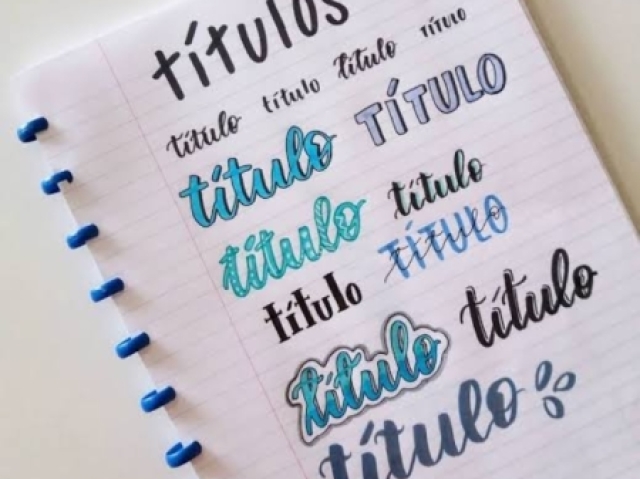 títulos
título título título título
título TÍTULO
título título
título TÍTULO título
título título
título